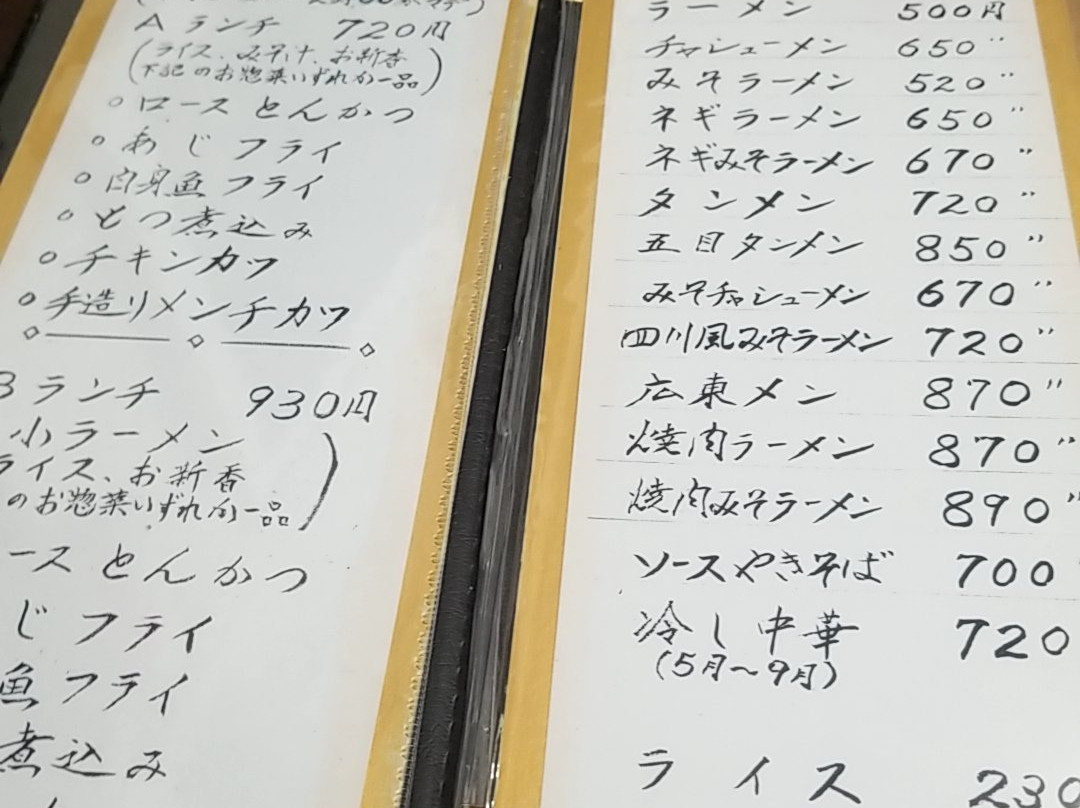 Aランチ 720円
(ライス、みそ汁、お新香
下記のお惣菜いずれか一品)
○ロースとんかつ
○あじフライ
○白身魚フライ
○もつ煮込み
○チキンカツ
○手造りメンチカツ
Bランチ 930円
小ラーメン
ライス、お新香
のお惣菜いずれか一品)
ースとんかつ
じフライ
魚フライ
煮込み
ラーメン 500円
チャシューメン 650〃
みそラーメン 520〃
ネギラーメン 650〃
ネギみそラーメン 670〃
タンメン 720〃
五目タンメン 850〃
みそチャシューメン 670〃
四川風みそラーメン 720〃
広東メン 870〃
焼肉ラーメン 870〃
焼肉みそラーメン 890〃
ソースやきそば 700
冷し中華 720
(5月〜9月)
ライス 230